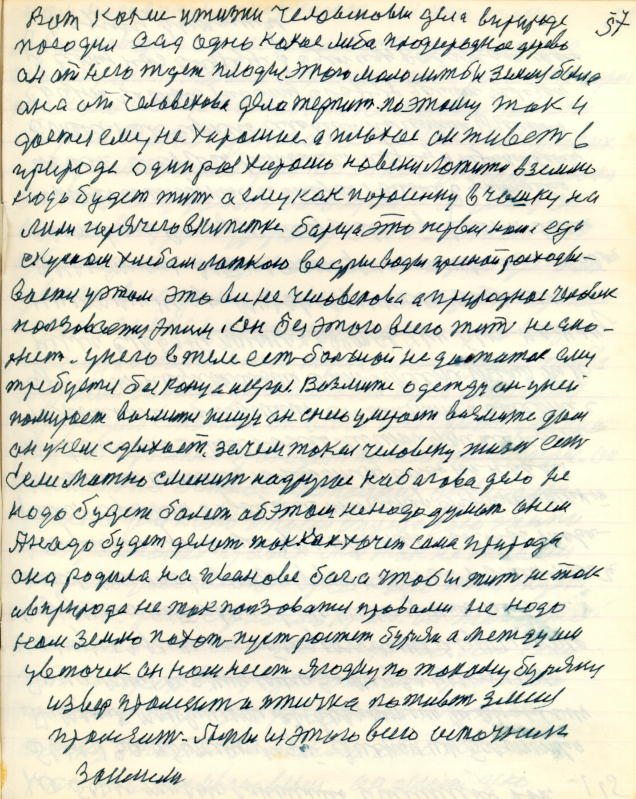 Вот какие и жизни человековы дела в природе
57
посодил сад одно какое либа плодеродное дерево
он от него ждет плоды этого мало жит бы земля была
она от человекова дела терпит. поэтому так и
дается ему не харошае а плохое он живет в
природе один раз харошо на вени ложить в землю
надо будет жит а ему как поросенку в чашку на
лили горячего в кипетке барща это первая ноше еда
скуском хлебам ложкою ведры воды пресной росходы-
вается утом это вине человекова а природное человек
пользовается этим. он без этого всего жит не смо-
жет. у него в теле ест большой не достаток ему
требуется без конца и края. Возмите одежду он у ней
помирает возмите пищу он с нею умерает возмите дом
он у нем сдыхает. зачем такая человеку жизн ест
если можно сменит на другое набагова дело не
надо будет болет об этом не надо думат о нем
А надо будет делат так как хочет сама природа
она родила на Иванове бога чтобы жит не так
и в природе не так ползоватся правами не надо
нам землю пахат пуст ростет бурян а между им
цветочек он нам несет ягодку по такому буряну
и звер проживет и птичка поживет змия
проживет. А мы из этого всего источник
займем